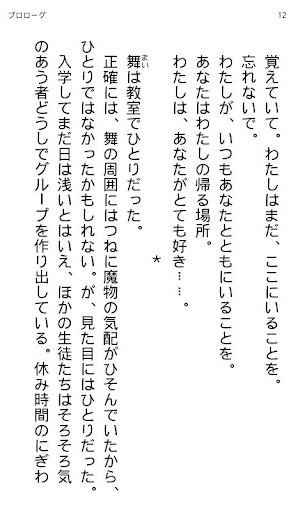 プロローグ
12
覚えていて。わたしはまだ、ここにいることを。
忘れないで。
わたしが、いつもあなたとともにいることを。
あなたはわたしの帰る場所。
わたしは、あなたがとても好き……。
*
舞は教室でひとりだった。
まい
正確には、舞の周囲にはつねに魔物の気配がひそんでいたから、
ひとりではなかったかもしれない。が、見た目にはひとりだった。
入学してまだ日は浅いとはいえ、ほかの生徒たちはそろそろ気
のあう者どうしでグループを作り出している。休み時間のにぎわ